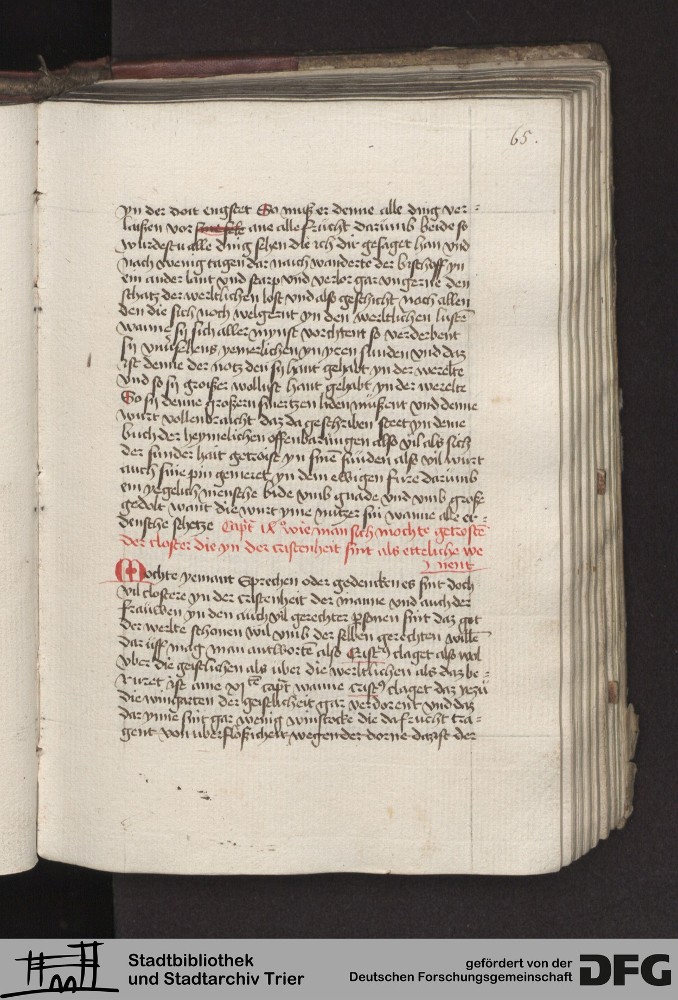 65.
yn der doit engstet So muß er denne alle ding ver⸗
laißen vor sine sele ane alle frücht darümb beide so
würdestu alle ding sehen die ich dir gesaget han vnd
nach wenig tagen dar nach wanderte der bischoff yn
ein ander lant vnd starp vnd verlor gar vngerne den
schatz der werltlichen lost vnd also geschicht noch allen
den die sich noch welgernt yn den werltlichen lüstē
wanne sy sich aller mynst vorchtent so verderbent
sy yemerlichen yn yren sunden vnd daz
ist denne der notz den sy hant gehabt yn der werelte
vnd so sy groißer wollust hant gehabt yn der werelte
So sy denne großern smertzen liden müßent vnd denne
wirt vollenbraicht daz da geschriben steet yn deme
buch der heymelichen offenbarungen also vil als sich
der sunder hait getroist yn sinē sunden also vil wirt
auch sine pin gemeret yn dem ewigen fure darumb
ein yegelich mensche bide vmb gnade vnd vmb große
gedolt want die wirt yme nutzer sin wanne alle er⸗
densche schetze Capt̄ ix wie man sich mochte getroste
der closter die yn der cristenheit sint als etteliche we
nent
Mochte yemant Sprechen oder gedencken es sint doch
vil clostere yn der cristenheit der manne vnd auch der
frauwen yn den auch vil gerechter psonen sint daz got
der werlte schonen wil vmb der selben gerechten willē
dar uff mag man antworten also Crist9 claget also wol
vber die geistlichen als uber die werltlichen als daz be⸗
ruret ist ame xi tē capt̄ wanne crist9 claget daz yczü
die wingarten der geistlicheit gar verdorent vnd daz
dar ynne sint gar wenig winstocke die da frucht tra⸗
gent von uberflößicheit wegen der dorne daz ist der
Stadtbibliothek
und Stadtarchiv Trier
gefördert von der
Deutschen Forschungsgemeinschaft
DFG